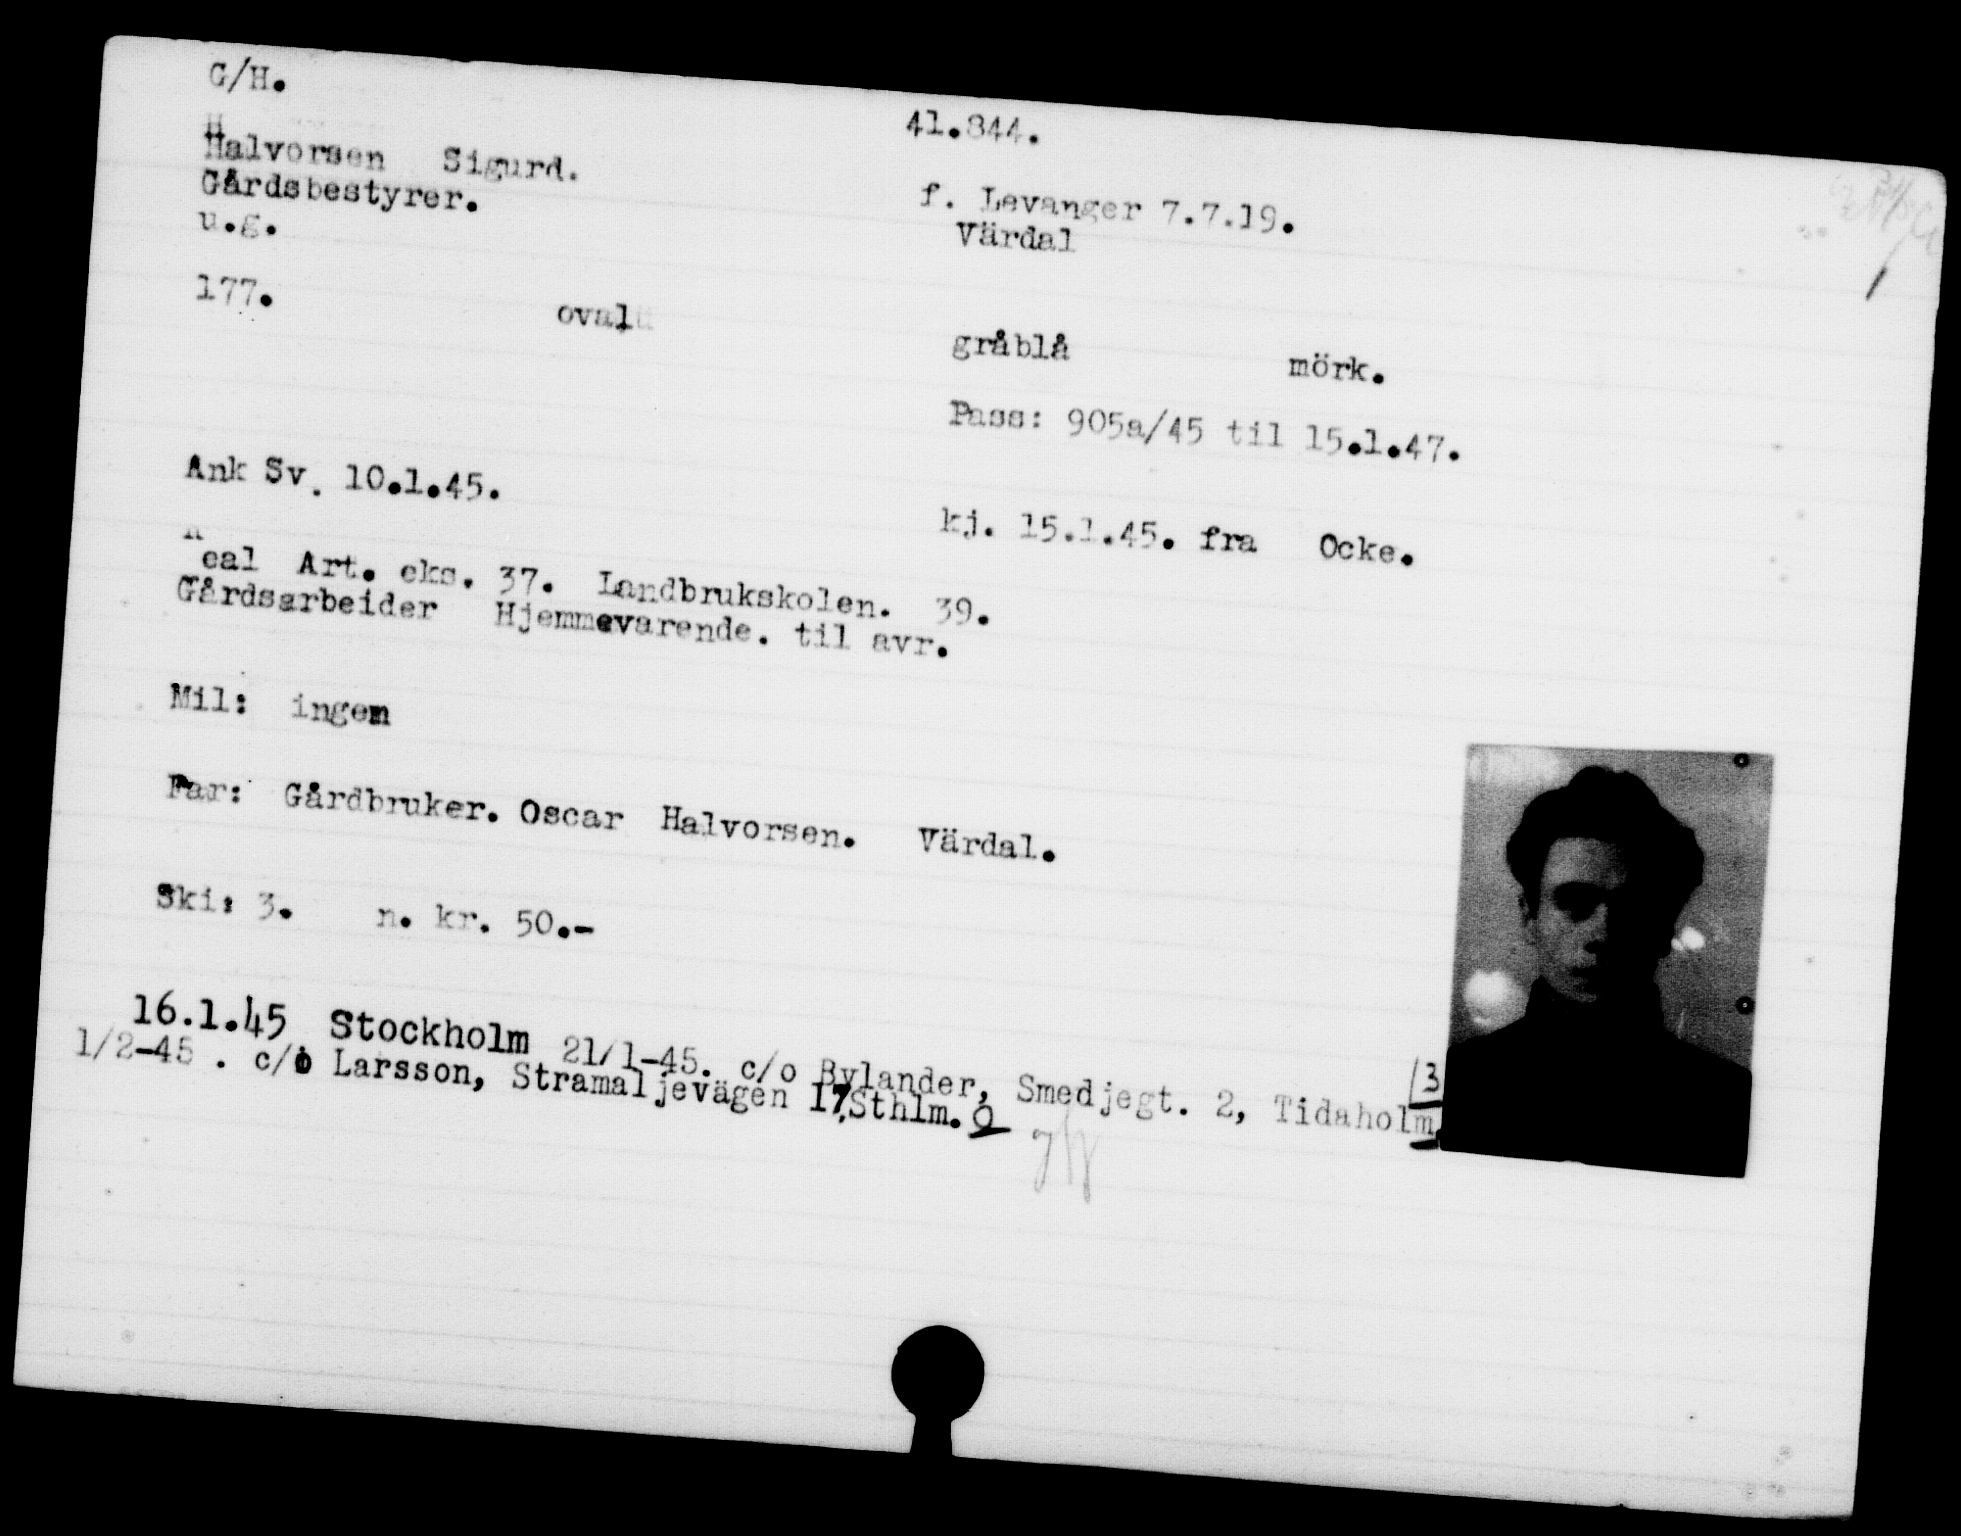 G/H.
41.844.
Halvorsen Sigurd.
Gårdsbestyrer.
f. Levanger 7.7.19.
u.g.
Värdal
177.
oval
gråblå
mörk.
Pass: 905a/45 til 15.1.47.
Ank Sv. 10.1.45.
kj. 15.1.45. fra Ocke.
Real Art. eks. 37. Landbrukskolen. 39.
Gårdsarbeider Hjemmeværende. til avr.
Mil: ingen
Far: Gårdbruker. Oscar Halvorsen. Värdal.
Ski: 3. n. kr. 50.-
16.1.45 Stockholm 21/1-45. c/o Bylander, Smedjegt. 2, Tidaholm.
13
1/2-45 . c/o Larsson, Stramaljevägen 17,Sthlm. 9